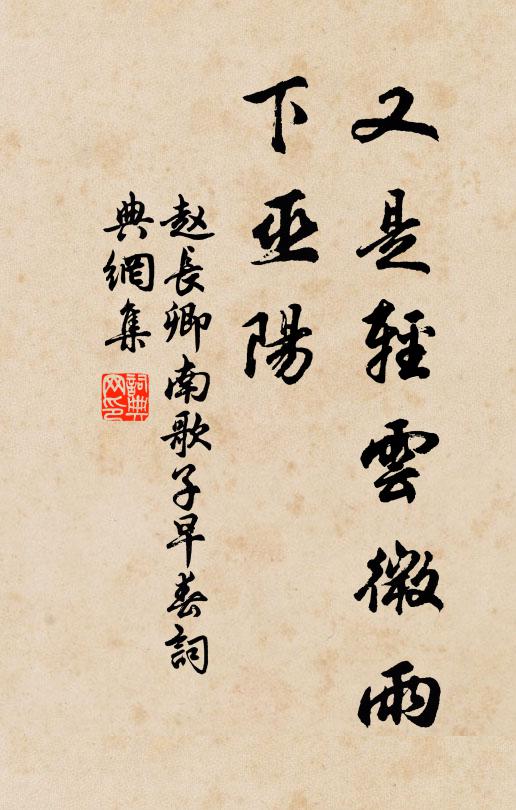 又是輕雲微雨
下巫陽
赵長卿南歌子早春詞
典網集
詞典
网印